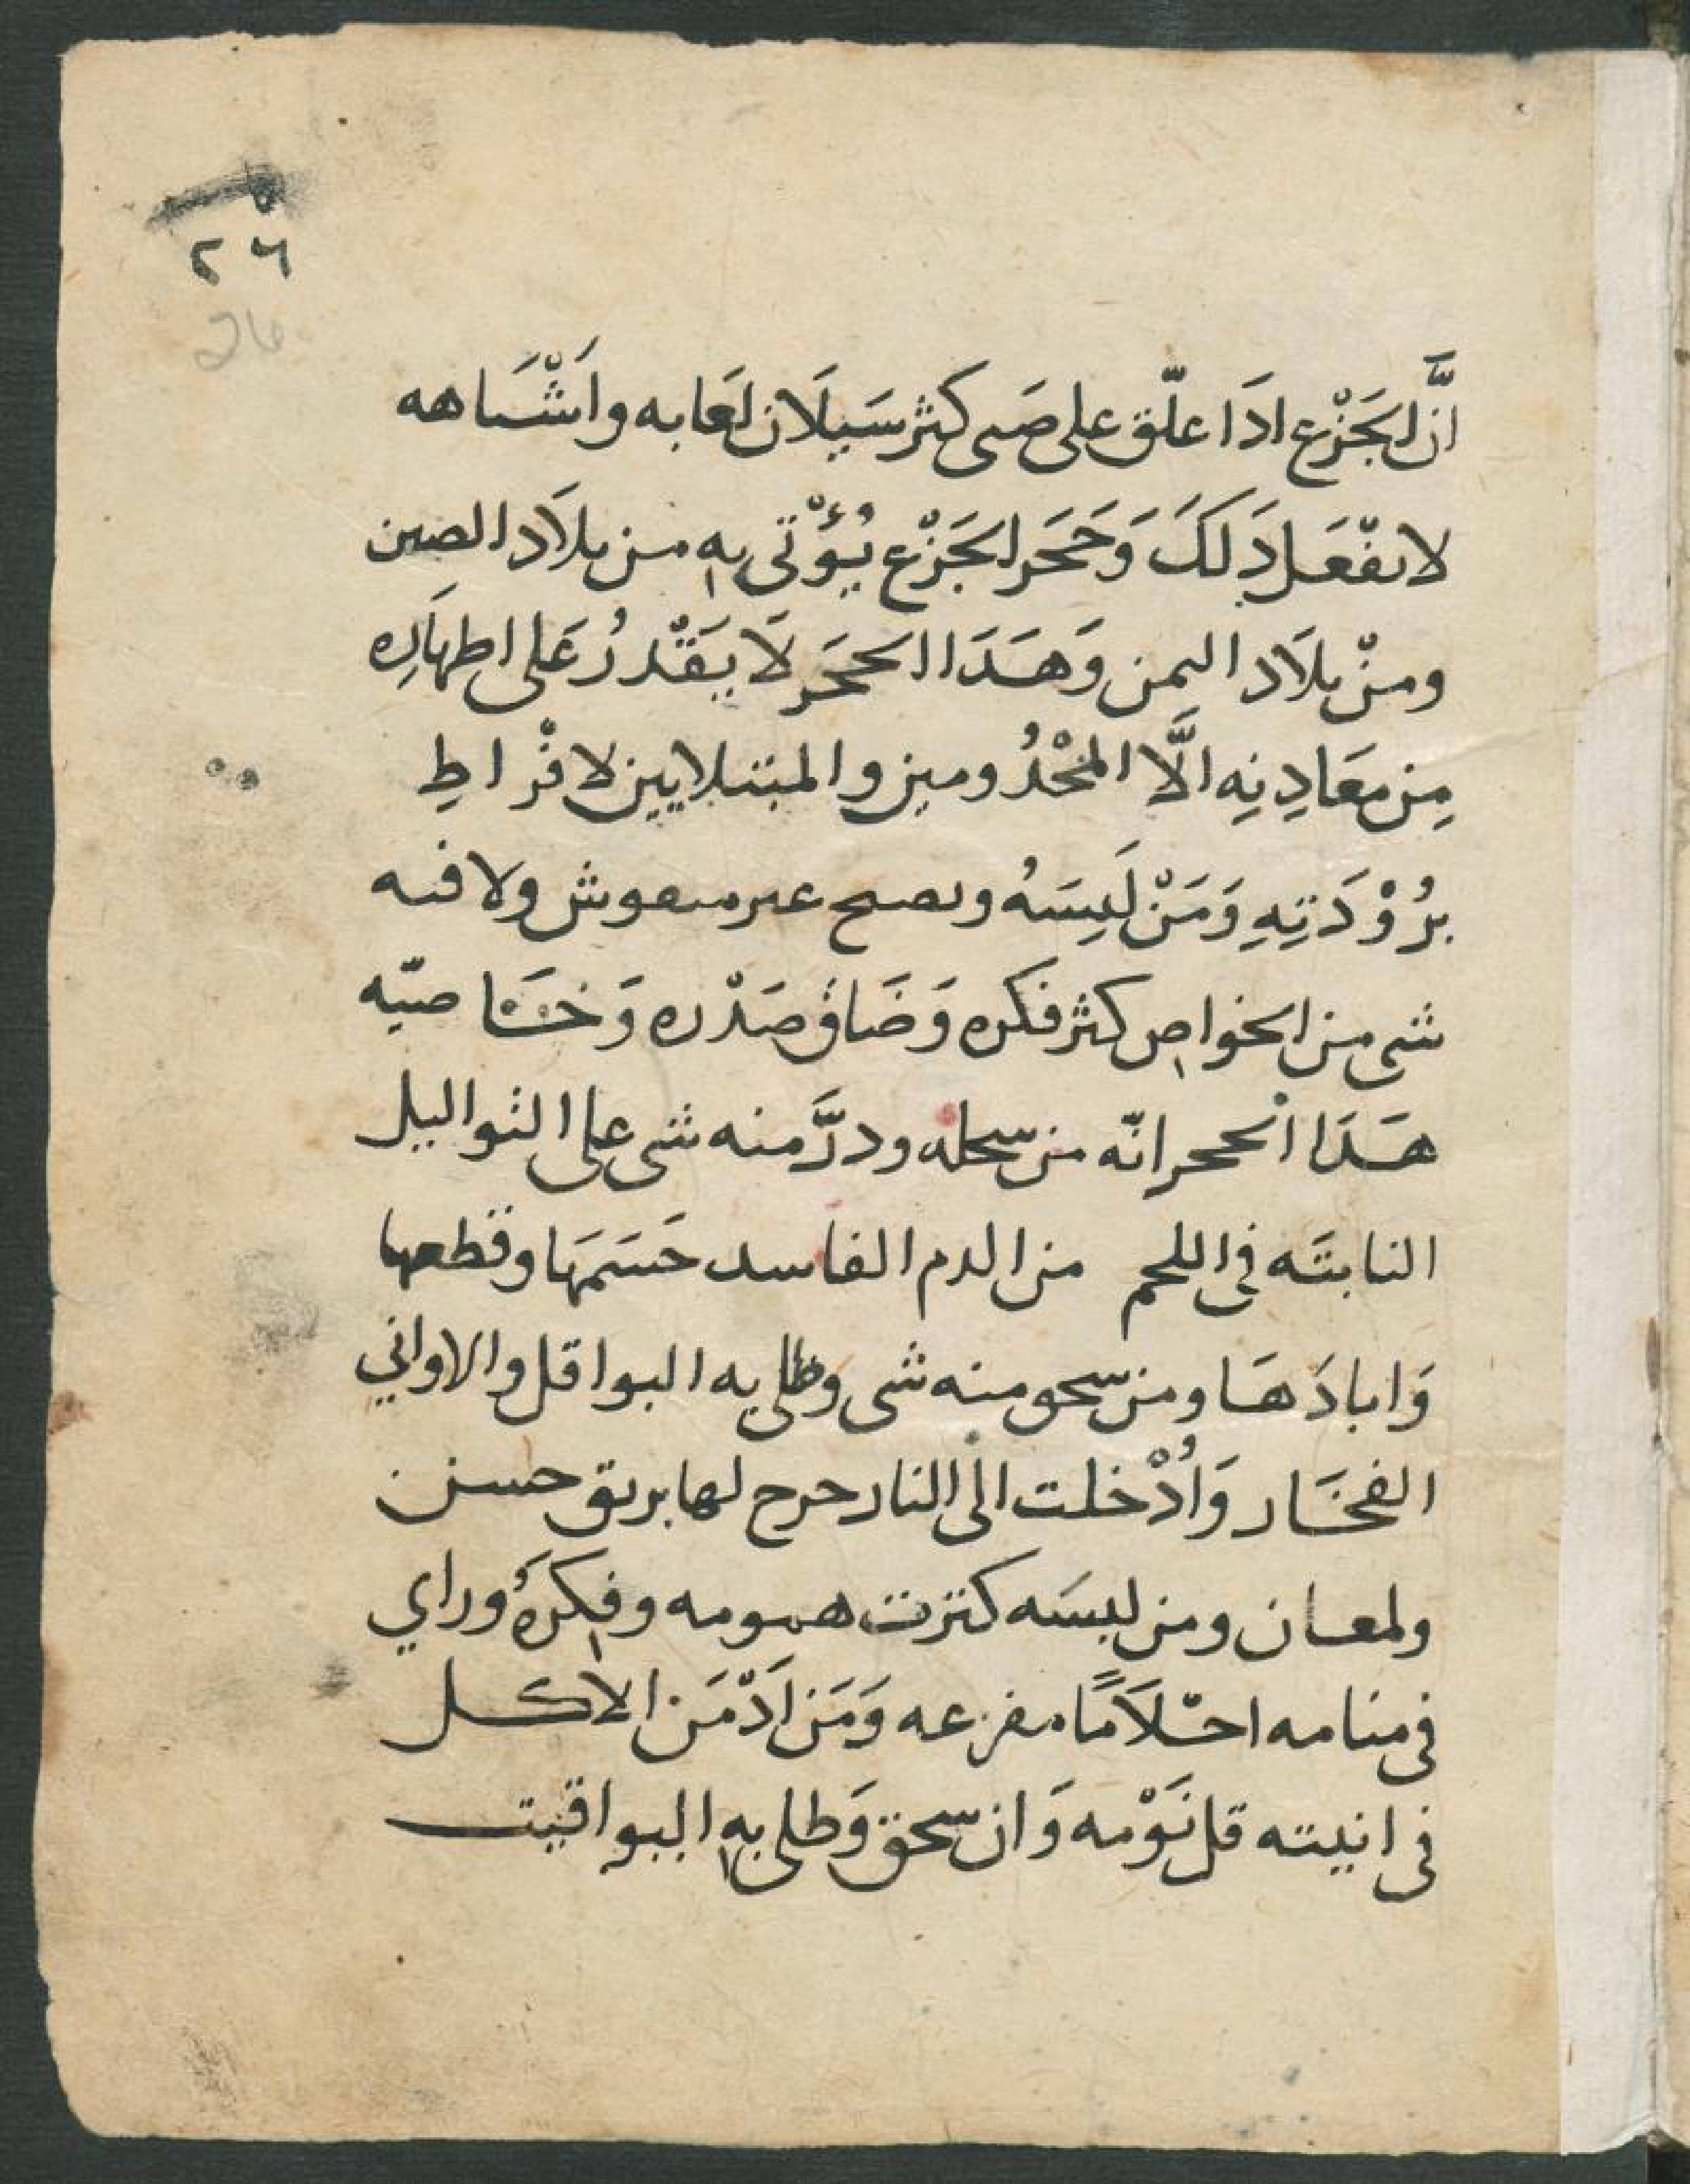 ٢٦
26
انَّ الجَزْع ادَا علّق على صَبى كثر سَيلَان لعَابه واَشْبَاهه
لا يفْعَل دَلكَ وَحَجَر الجَزْع يُؤْتى به من بلَاد الصين
ومنْ بلَاد اليمن وَهَدَا الحَجَر لَا يَقْدرُ عَلى اظهَارِه
مِن معَادِنِه الَّا المخْدُومين والمبتلايين لافْراطِ
برُوْدَتِهِ وَمَنْ لَبِسَهُ وبصح غير منقوش ولا فيه
شى من الخواص كثر فكره وَضَاق صَدْره وَخَاصيّه
هَدَا الحجر انّه من سحله ودرَّ منه شى على الثواليل
النابتَه فى اللحم من الدم الفاسد حَسَمَهَا وقطعها
وَابادَهَا ومن سحق منه شى وطلى به البواقل والاوانى
الفخَار وَاُدْخلت الى النار خرج لها بريق حسن
ولمعان ومن لبسَه كترت همومه وفكرهُ وراي
فى منامه احْلَامًا مفزعه وَمَن اَدْمَن الاكل
فى انيته قل نَوْمه وَان سحق وَطلى به اليواقيت